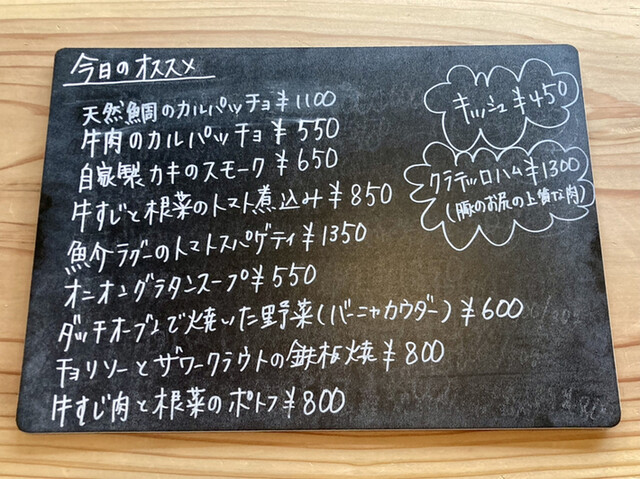 今日のオススメ
天然鯛のカルパッチョ¥1100
牛肉のカルパッチョ¥550
自家製カキのスモーク¥650
牛すじと根菜のトマト煮込み¥850
魚介ラグーのトマトスパゲティ¥1350
オニオングラタンスープ¥550
ダッチオーブンで焼いた野菜(バーニャカウダー)¥600
チョリソーとザワークラウトの鉄板焼¥800
牛すじ肉と根菜のポトフ¥800
キッシュ¥450
クラテッロハム¥1300
(豚のお尻の上質な肉)